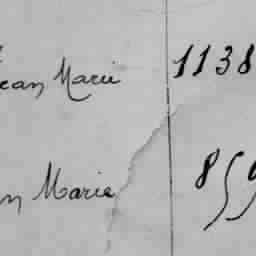 Jean Marie 1138
n Marie 859